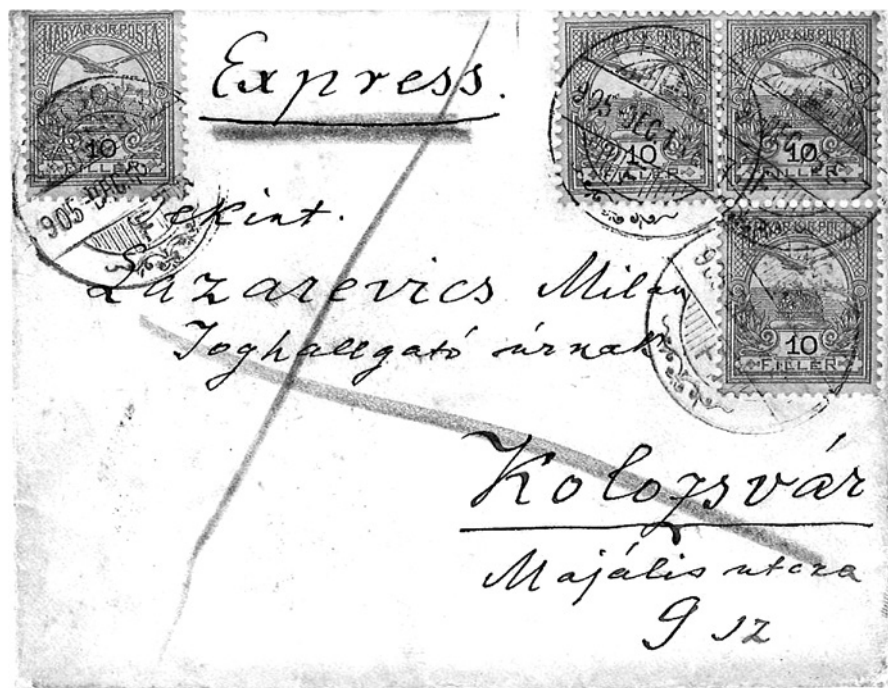 MAGYAR KIR. POSTA
10
FILLÉR
905 DEC
MAGYAR KIR. POSTA
10
FILLÉR
905 DEC 1
MAGYAR KIR. POSTA
10
FILLÉR
MAGYAR KIR. POSTA
10
FILLÉR
Express.
Tekint.
Lazarevics Milan
Joghallgató úrnak
Kolozsvár
Majális utcza
9 sz